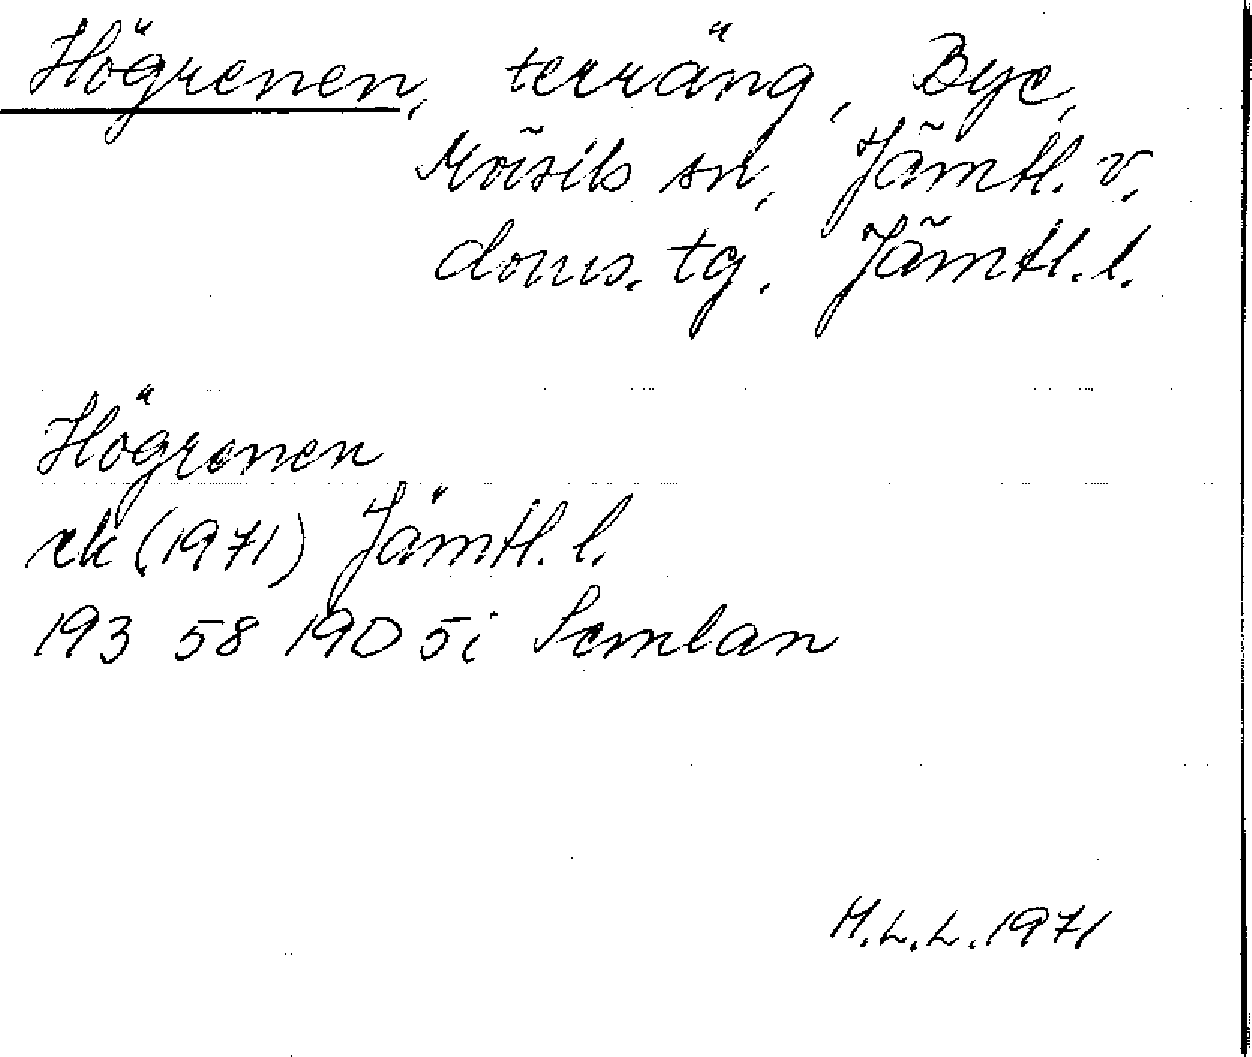 Högrenen, terräng, Bye,
Mörsils sn, Jämtl. v.
doms. tg. Jämtl. l.
Högrenen
rk (1971) Jämtl. l.
193 58 19D 5i Semlan
H.L.L. 1971